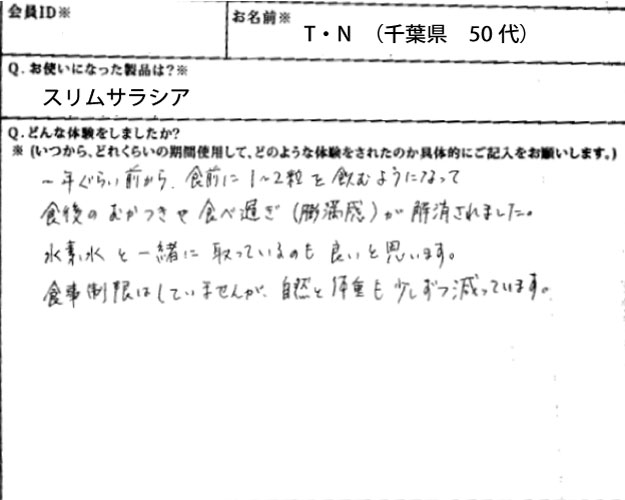 会員ID※
お名前※
T・N （千葉県 50代）
Q. お使いになった製品は？※
スリムサラシア
Q. どんな体験をしましたか？
※（いつから、どれくらいの期間使用して、どのような体験をされたのか具体的にご記入をお願いします。）
一年ぐらい前から、食前に1〜2粒を飲むようになって
食後のむかつきや食べ過ぎ（膨満感）が解消されました。
水素水と一緒に取っているのも良いと思います。
食事制限はしていませんが、自然と体重も少しずつ減っています。